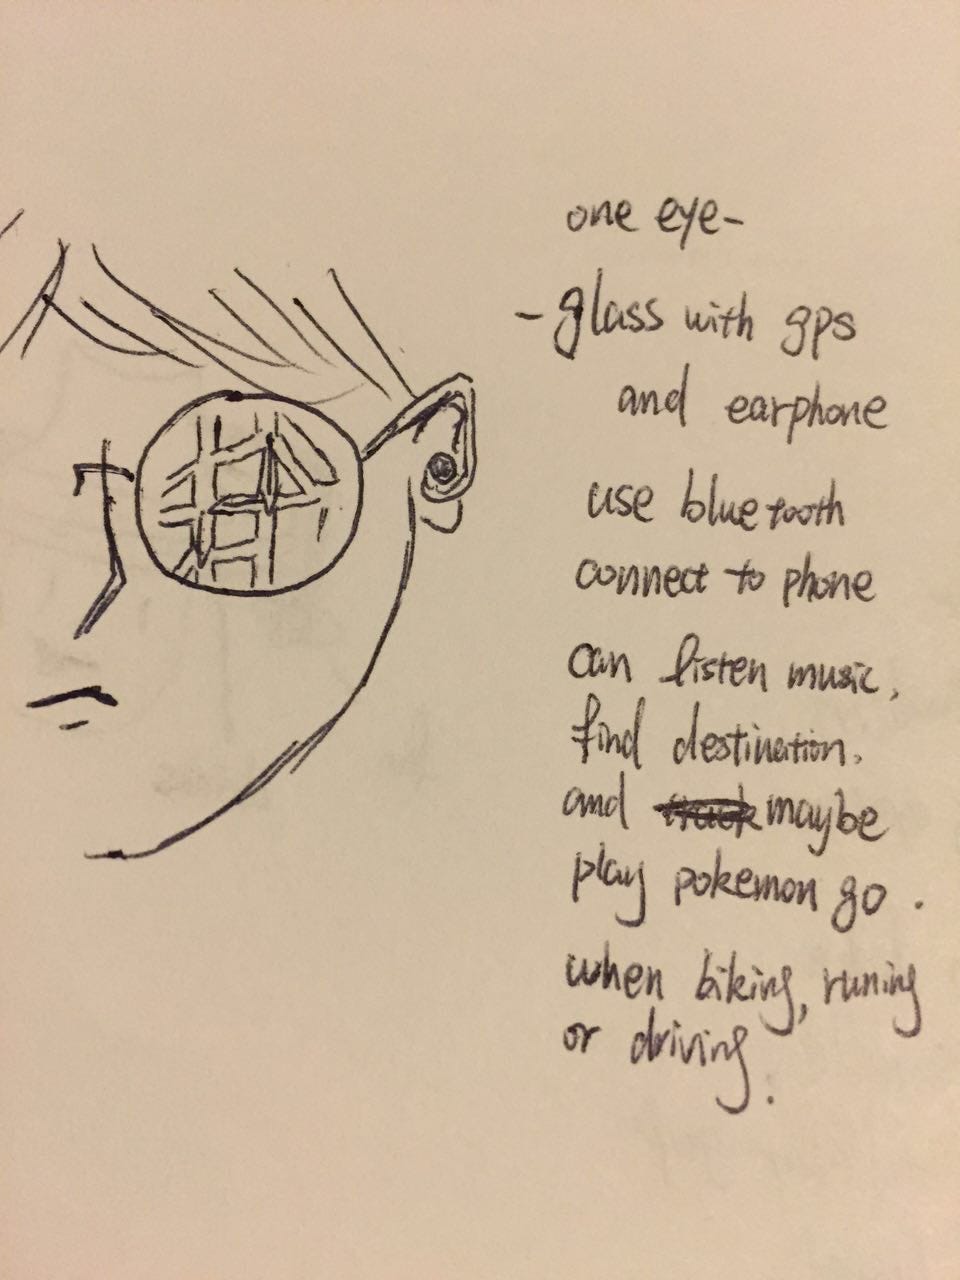 one eye-
-glass with gps
and earphone
use bluetooth
connect to phone
can listen music,
find destination.
and maybe
play pokemon go.
when biking, runing
or driving.